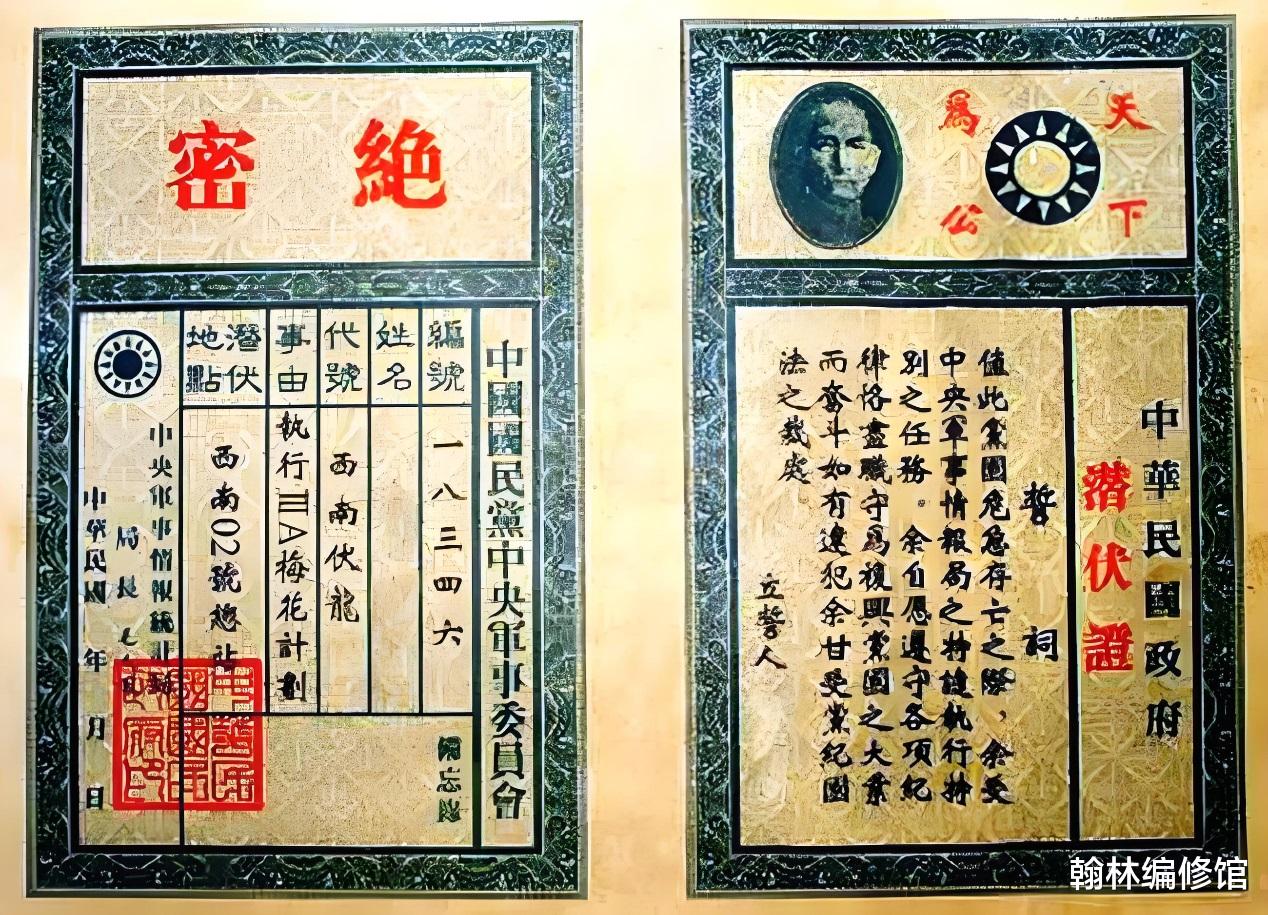 絕密
中國國民黨中央軍事委員會
編號
一八三四六
姓名
代號
西南伏龍
事由
執行IIIA梅花計劃
潛伏
地點
西南02號總站
中央軍事情報統計
局長
中華民國 年 月 日
天下
爲公
中華民國政府
潛伏證
誓祠
值此黨國危急存亡之際，余受
中央軍事情報局之特 執行特
別之任務。余自愿遵守各項紀
律恪盡職守爲復興黨國之大業
而奮斗如有違犯余甘受黨紀國
法之裁處
立誓人
翰林编修馆